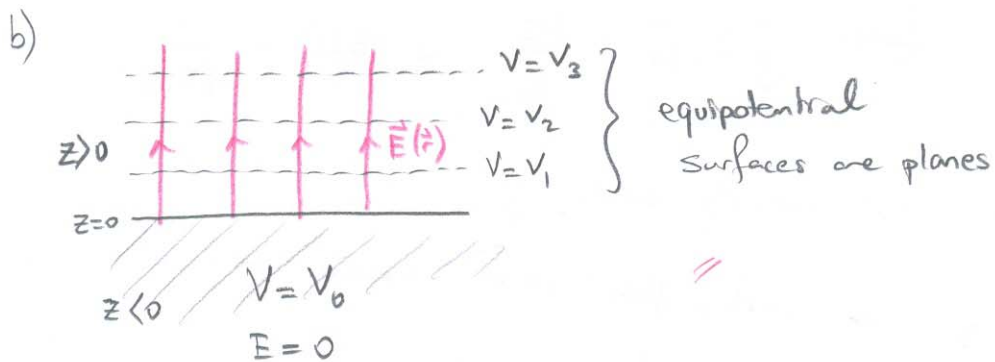 b)
V = V₃
V = V₂
V = V₁
equipotential
surfaces are planes
z>0
E⃗(r⃗)
z=0
z<0
V = V₀
E = 0